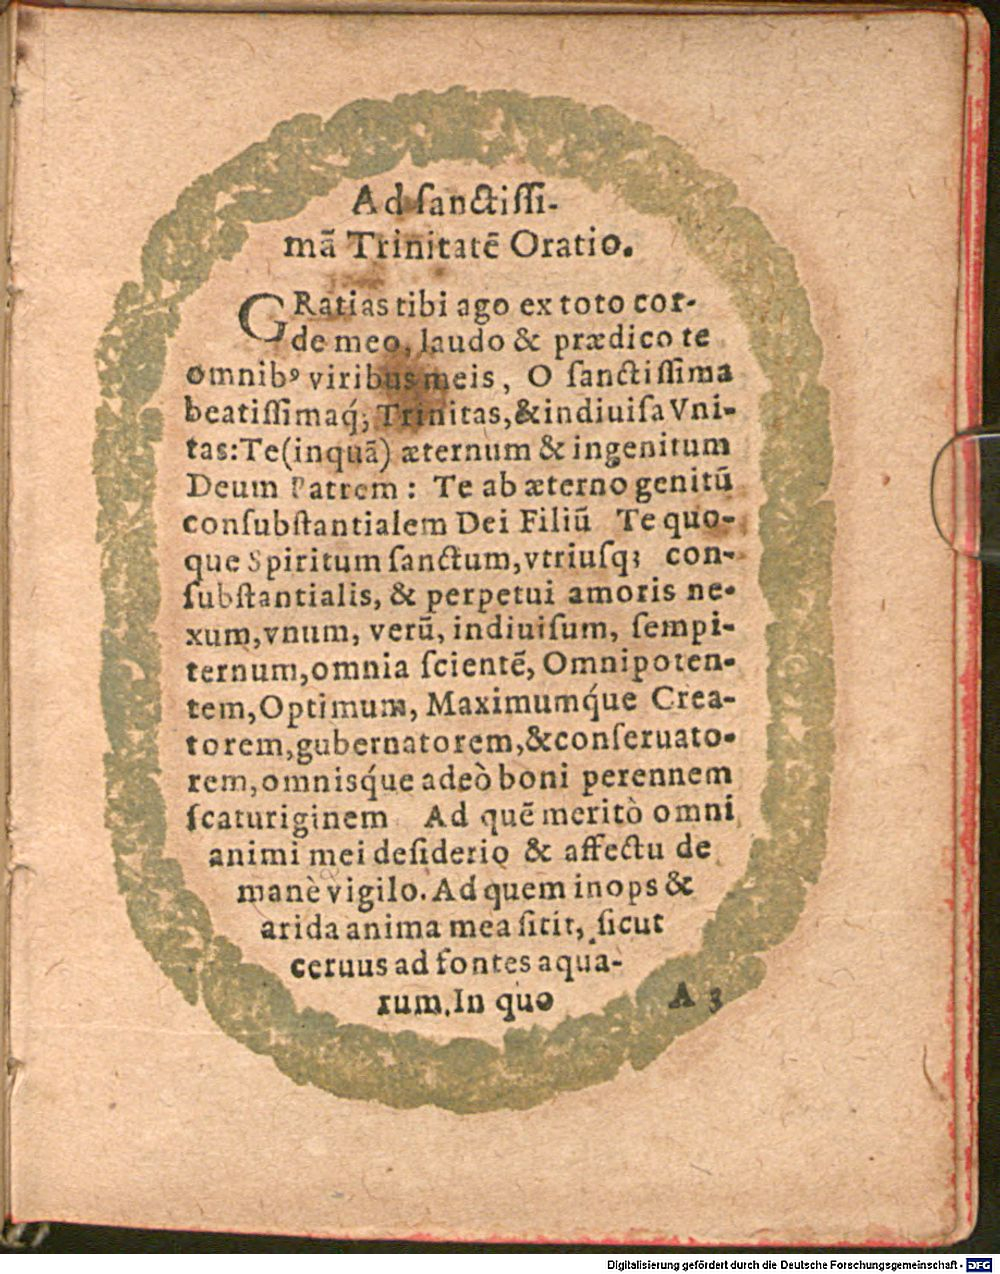 Ad ſanctiſſi-
mã Trinitatẽ Oratio.
GRatias tibi ago ex toto cor-
de meo, laudo & prædico te
omnibꝰ viribus meis, O ſanctiſſima
beatiſſimaq́; Trinitas, & indiuiſa Vni-
tas: Te (inquã) æternum & ingenitum
Deum Patrem : Te ab æterno genitũ
conſubſtantialem Dei Filiũ Te quo-
que Spiritum ſanctum, vtriuſq; con-
ſubſtantialis, & perpetui amoris ne-
xum, vnum, verũ, indiuiſum, ſempi-
ternum, omnia ſcientẽ, Omnipoten-
tem, Optimum, Maximumq́ue Crea-
torem, gubernatorem, & conſeruato-
rem, omnisq́ue adeò boni perennem
ſcaturiginem Ad quẽ meritò omni
animi mei deſiderio & affectu de
manè vigilo. Ad quem inops &
arida anima mea ſitit, ſicut
ceruus ad fontes aqua-
rum. In quo
A 3
Digitalisierung gefördert durch die Deutsche Forschungsgemeinschaft - DFG